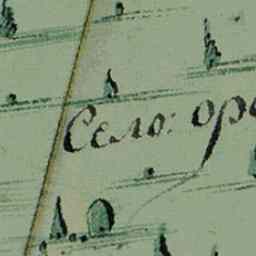 Село: оро